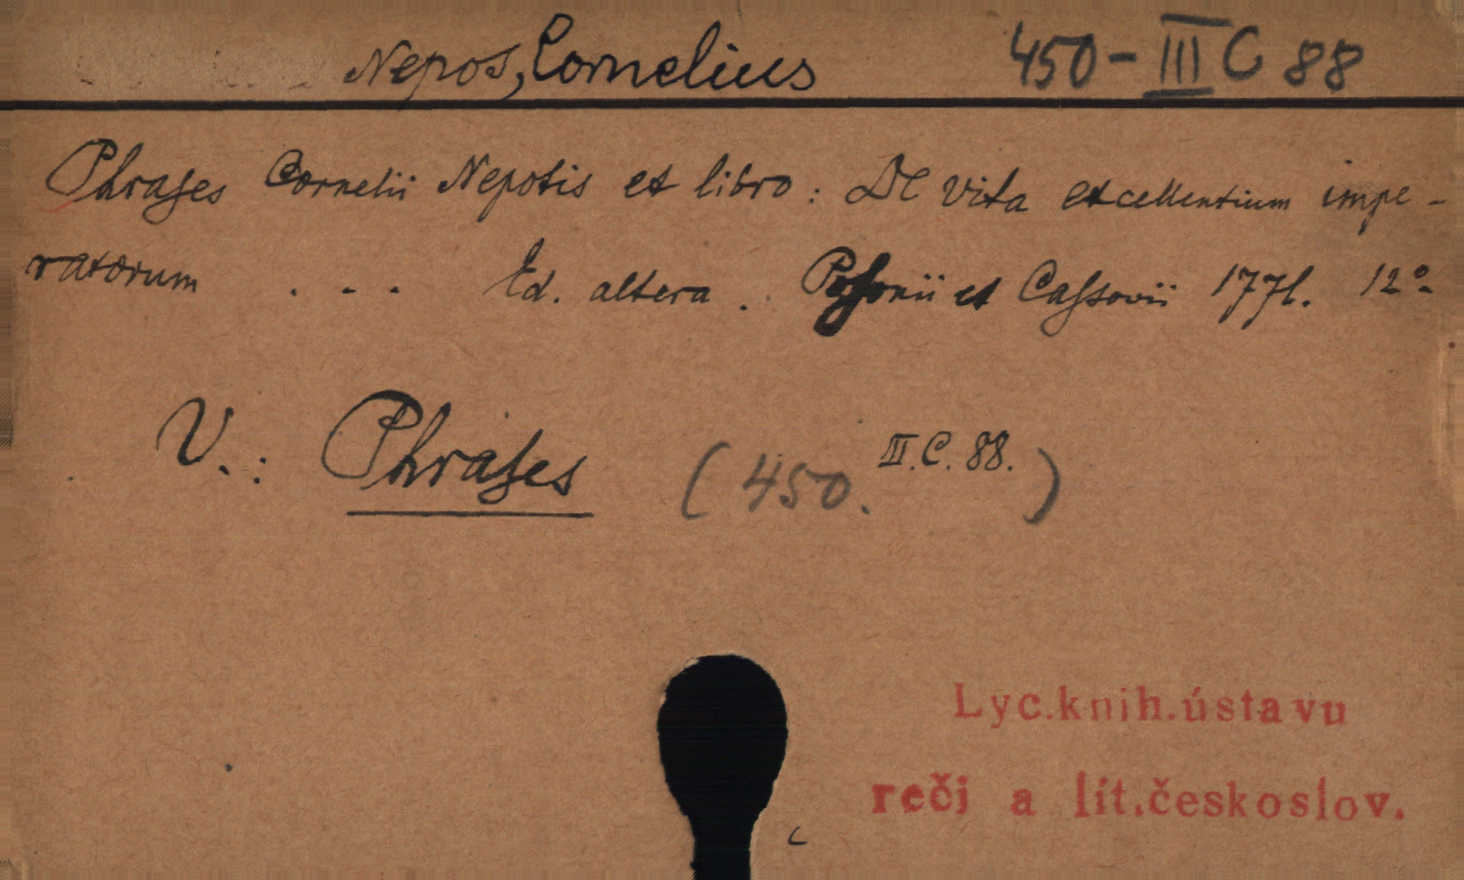 Nepos, Cornelius 450-III C 88
Phrases Cornelii Nepotis et libro: De vita excellentium impe-
ratorum . . . Ed. altera. Possonii et Cassovii 1771. 12°
V.: Phrases (450. III.C.88.)
Lyc.knih.ústavu
reči a lit.českoslov.